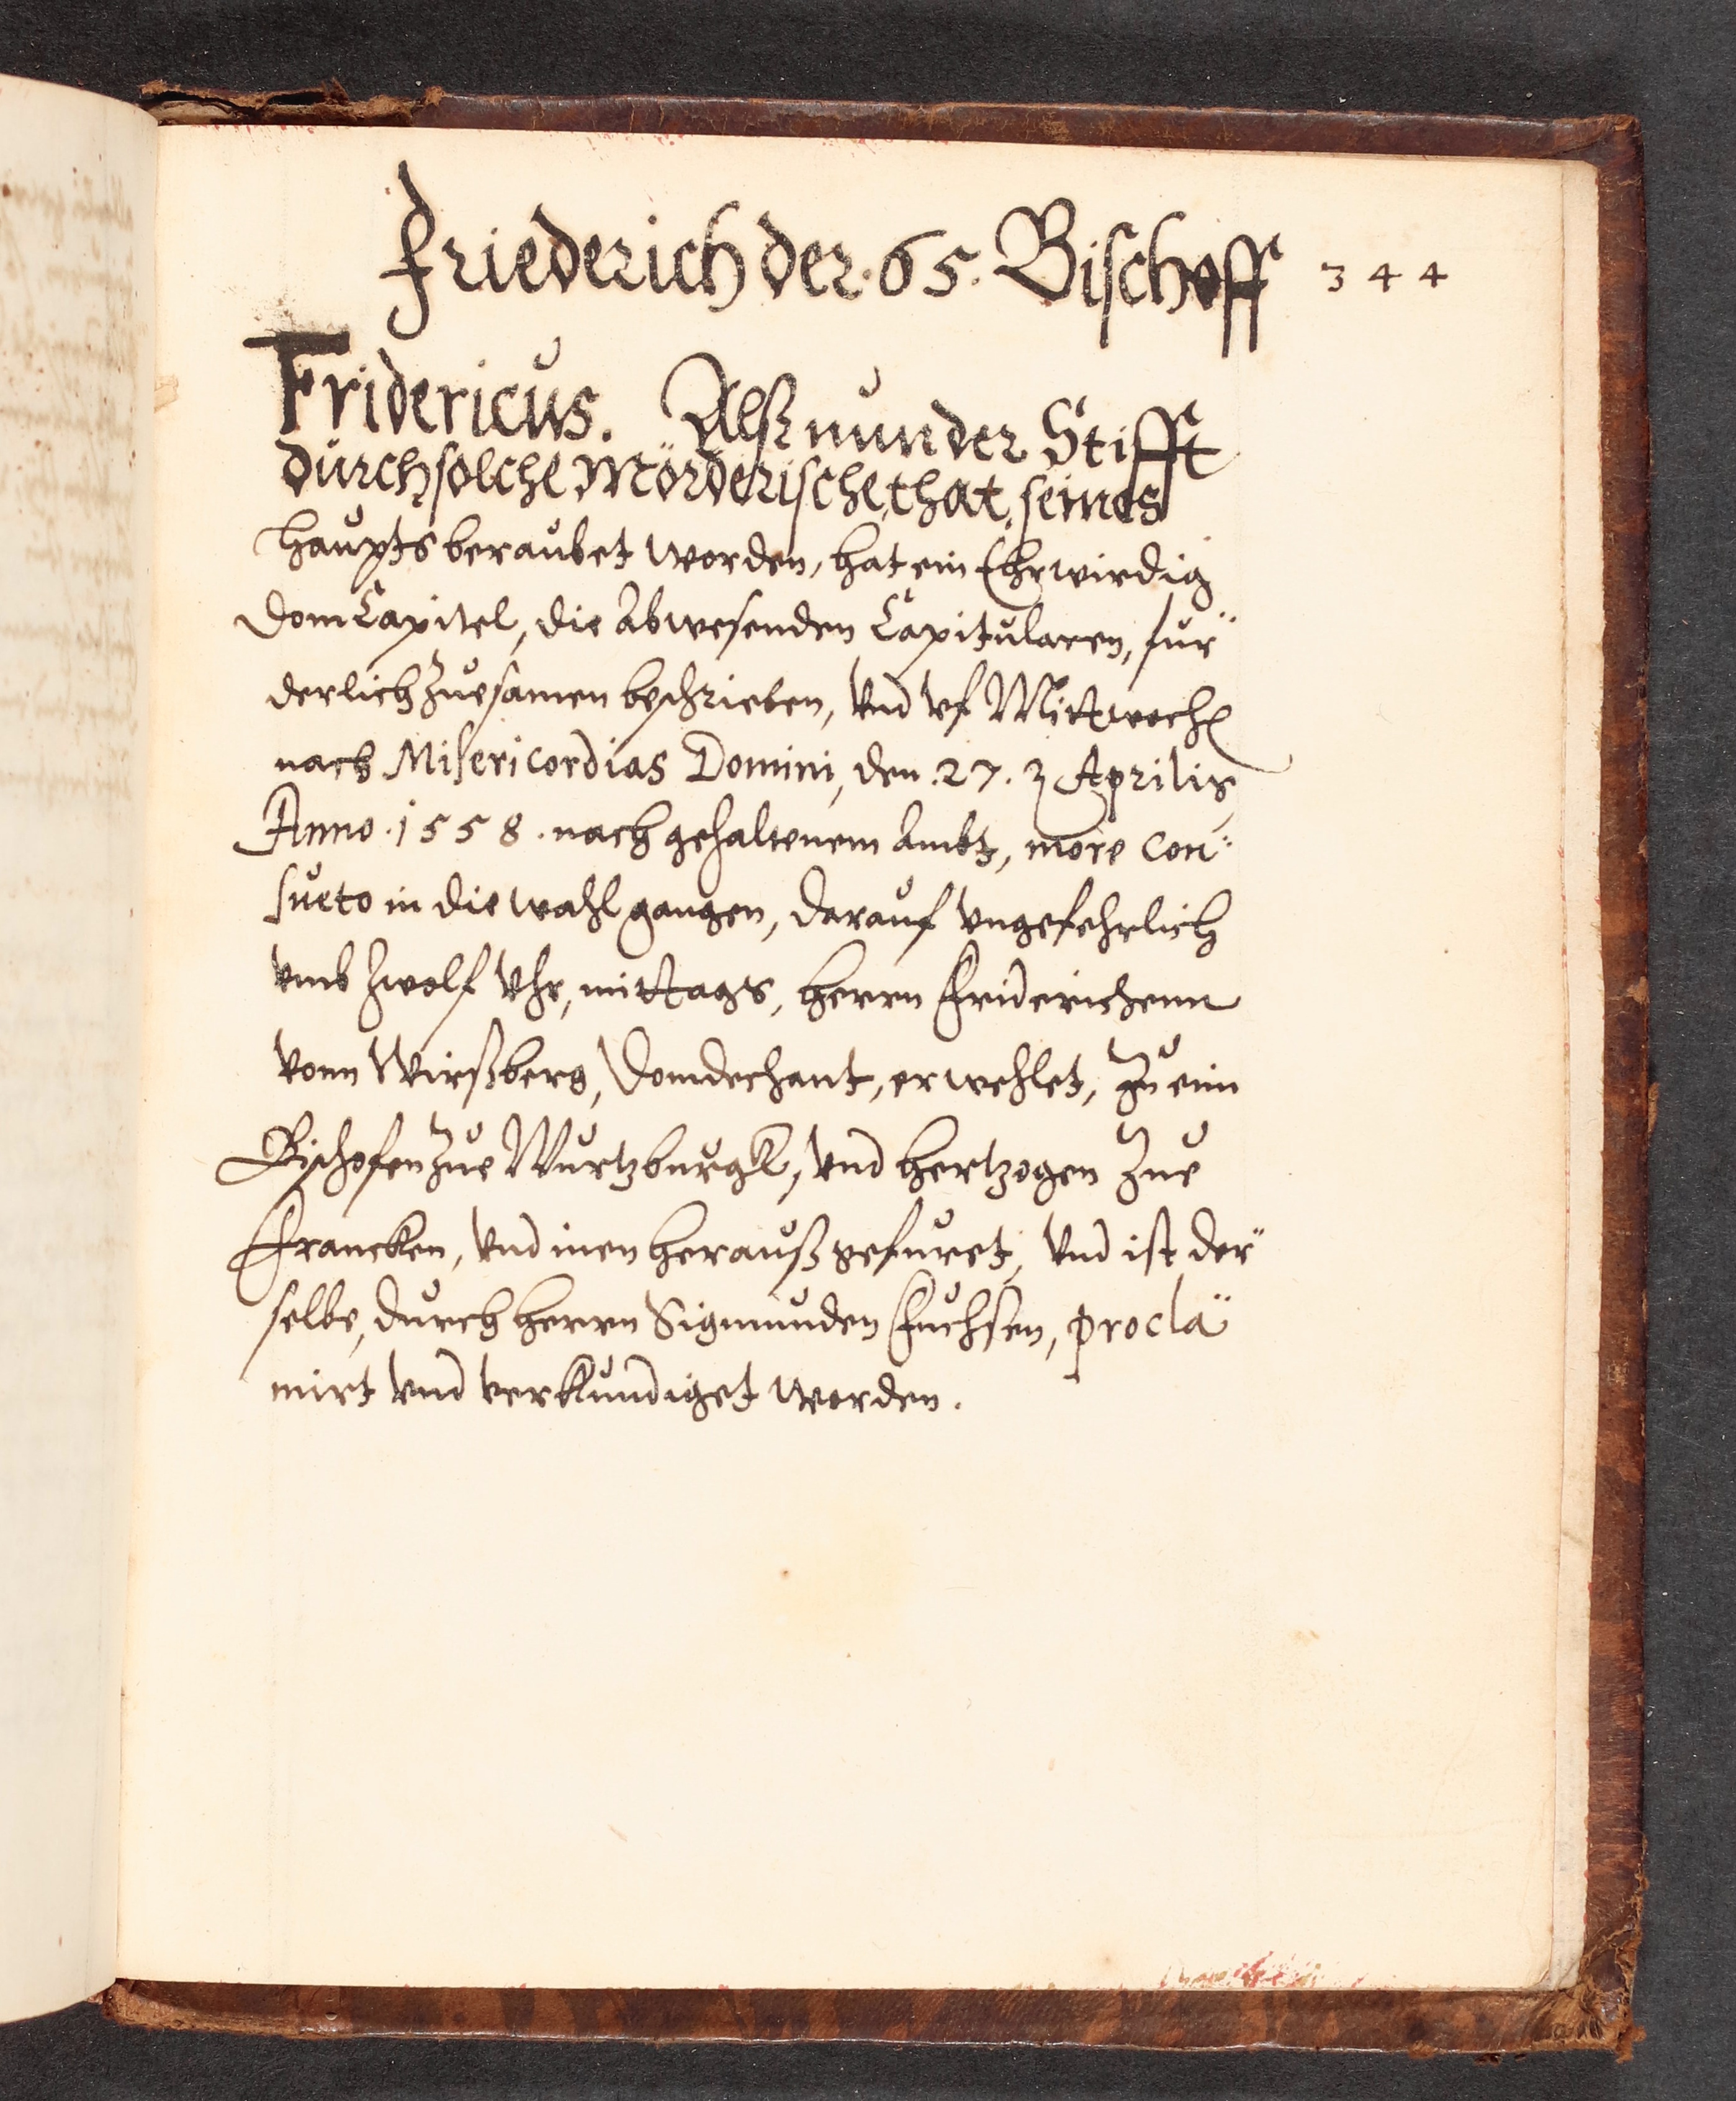 Friederich der .65. Bischoff 344
Fridericus. Alß nun der Stifft
durch solche Mörderische that seines
haupts beraubet worden, hat ein Ehrwirdig
Dom Capitel, die Abwesenden Capitularen, für¨
derlich zue samen beschrieben, vnd vf Mittwochen
nach Misericordias Domini, den .27. Aprilis
Anno .1558. nach gehaltenem Ambt, more con¨
sueto in die wahl gangen, darauf vngefehrlich
vmb Zwolf Vhr, mittags, herrn Friderichenn
vonn Wirßberg, Domdechant, erwehlet, zu eim
Bischofen zue Wurtzburgk, vnd Hertzogen Zue
Francken, vnd inen herauß gefuret, vnd ist der¨
selbe, durch herrn Sigmunden Fuchsen, procla¨
mirt vnd verkundiget worden.